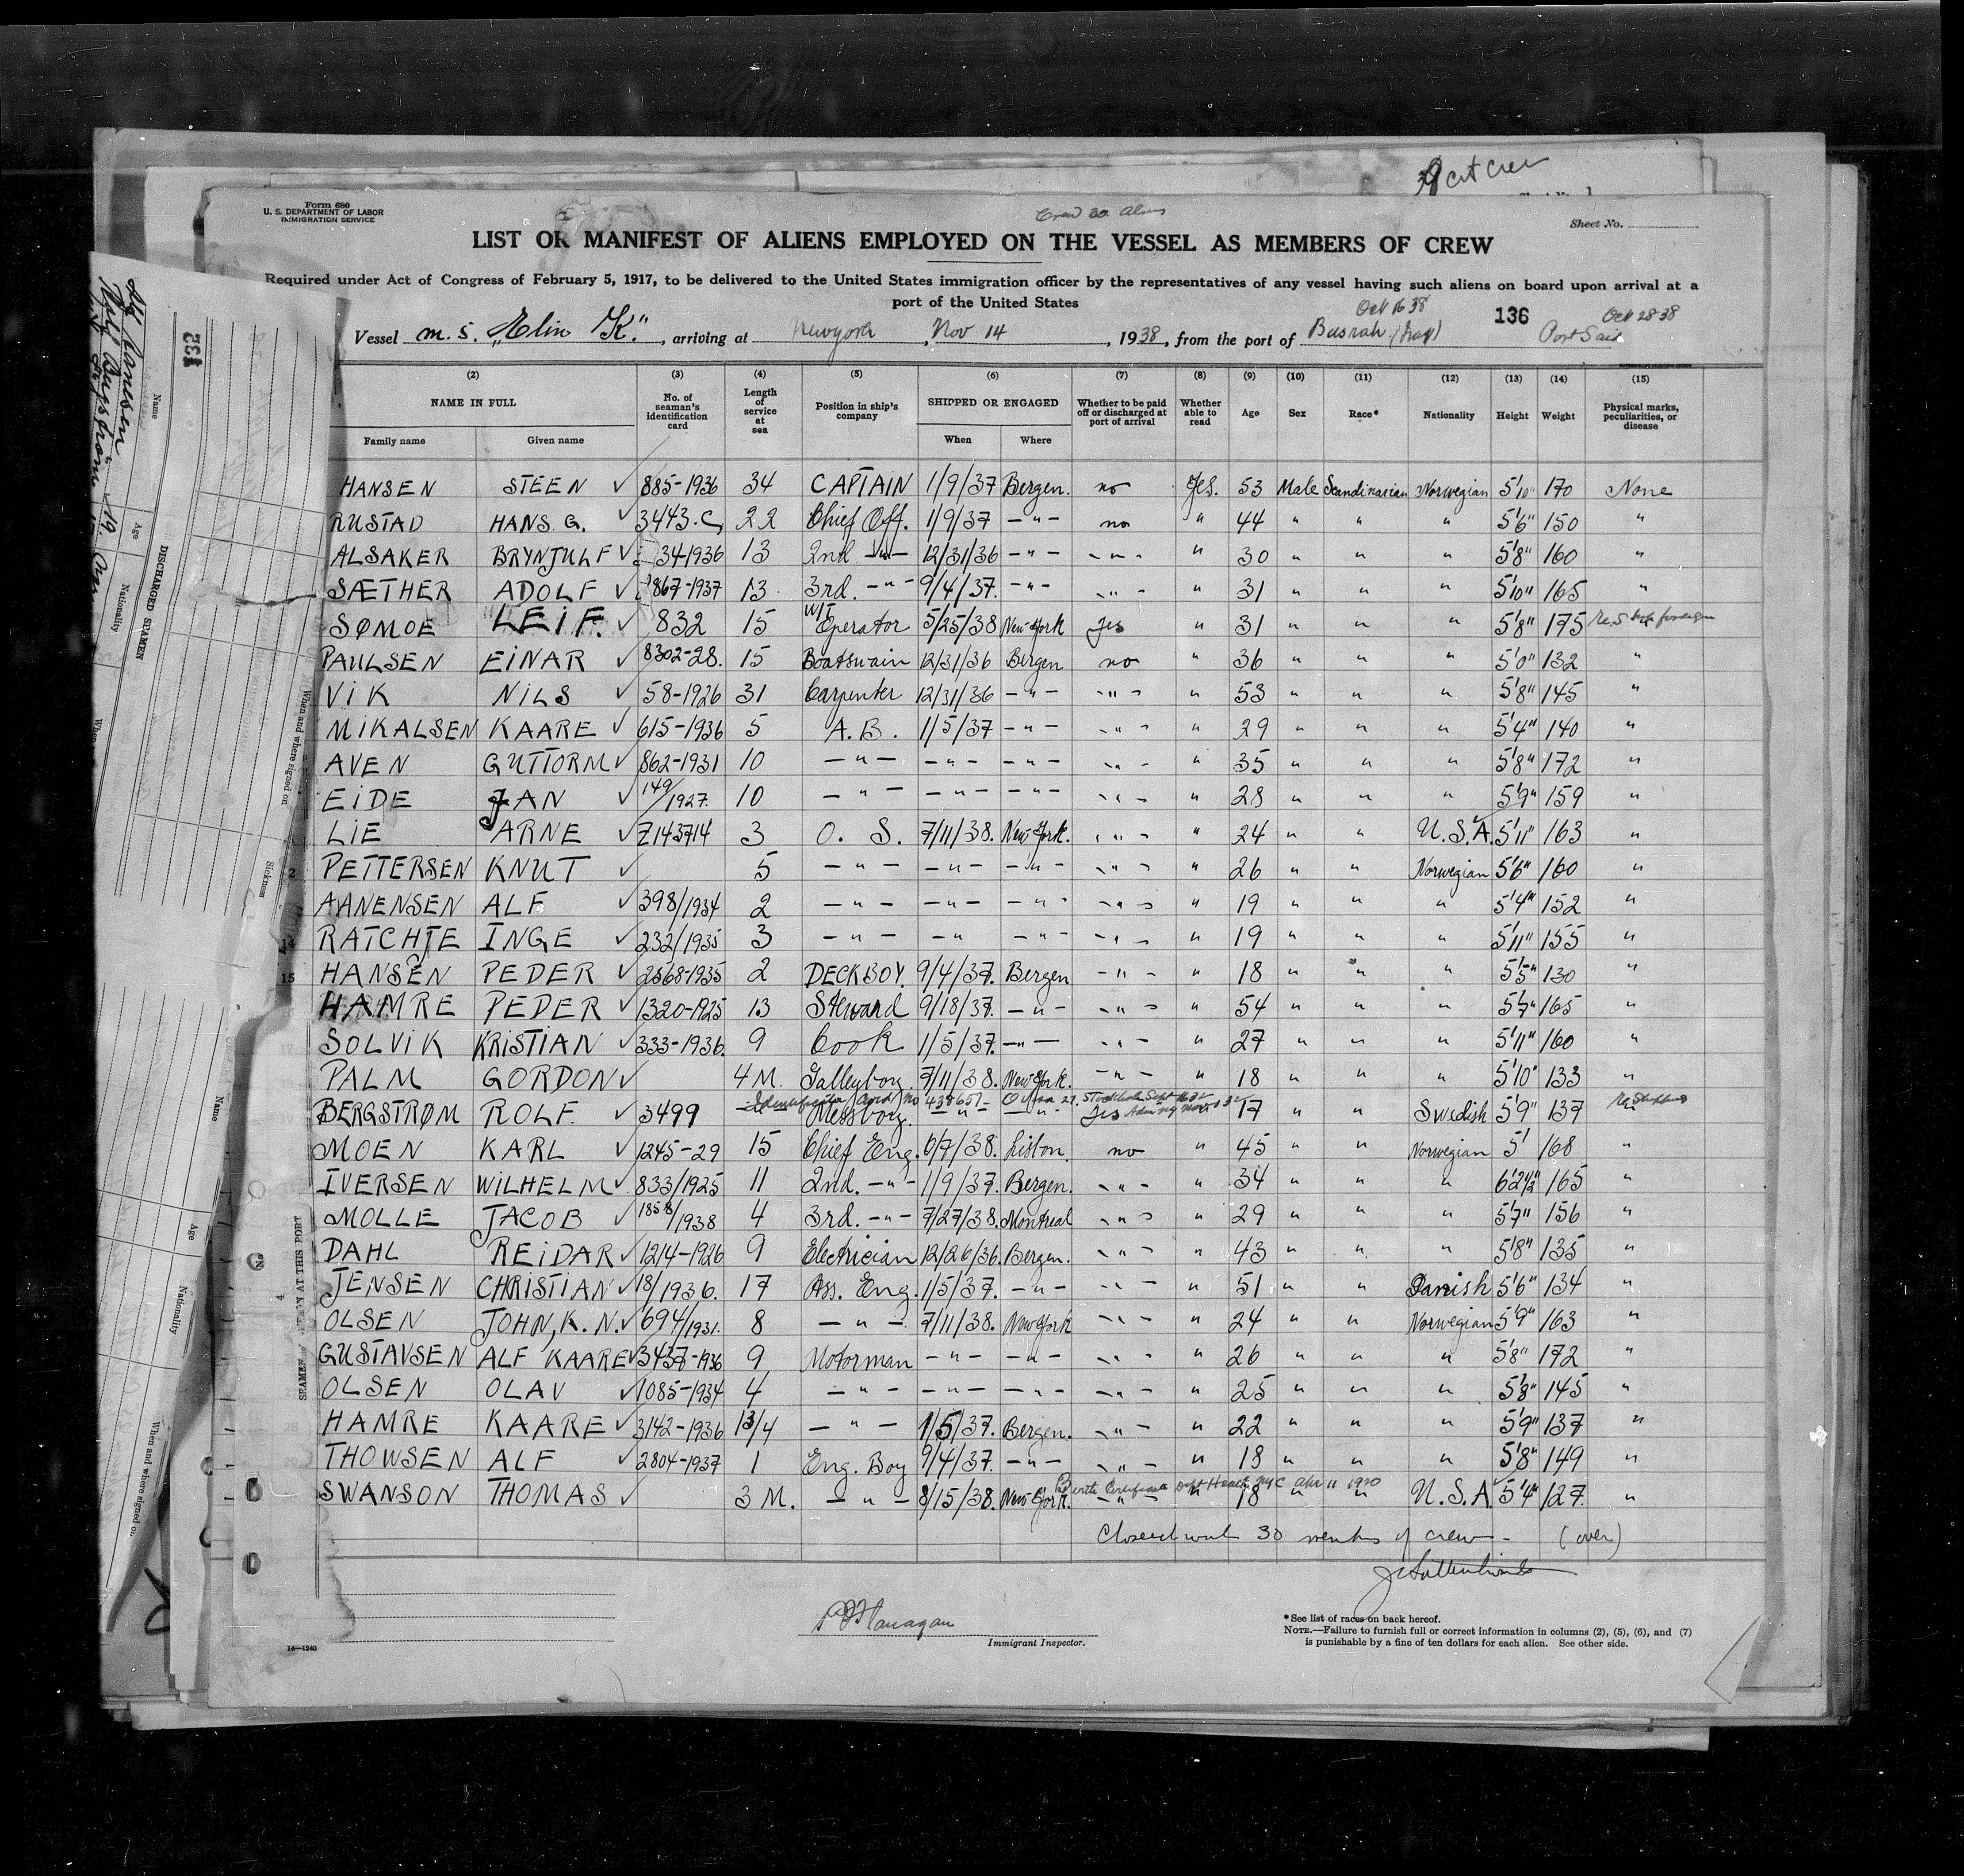 Act Crew
Form 680
U. S. DEPARTMENT OF LABOR
IMMIGRATION SERVICE
Crew 30 Aliens
Sheet No.
LIST OR MANIFEST OF ALIENS EMPLOYED ON THE VESSEL AS MEMBERS OF CREW
Required under Act of Congress of February 5, 1917, to be delivered to the United States immigration officer by the representatives of any vessel having such aliens on board upon arrival at a
port of the United States
Oct 16 38 136 Oct 28 38
Vessel m.s. "Elin K.", arriving at New York, Nov 14, 1938, from the port of Basrah (Iraq) Port Said
(2) (3) (4) (5) (6) (7) (8) (9) (10) (11) (12) (13) (14) (15)
NAME IN FULL No. of seaman's identification card Length of service at sea Position in ship's company SHIPPED OR ENGAGED Whether to be paid off or discharged at port of arrival Whether able to read Age Sex Race* Nationality Height Weight Physical marks, peculiarities, or disease
Family name Given name When Where
HANSEN STEEN ✓ 885-1936 34 CAPTAIN 1/9/37 Bergen. no Yes. 53 Male Scandinavian Norwegian 5'10" 170 None
RUSTAD HANS G. ✓ 3443.C 22 Chief Off. 1/9/37 -"- no " 44 " " " 5'6" 150 "
ALSAKER BRYNJULF ✓ 34-1936 13 2nd -"- 12/31/36 -"- -"- " 30 " " " 5'8" 160 "
SÆTHER ADOLF ✓ 867-1937 13 3rd. -"- 9/4/37. -"- -"- " 31 " " " 5'10" 165 "
SØMOE LEIF. ✓ 832 15 W/T Operator 5/25/38 New York Yes " 31 " " " 5'8" 175
PAULSEN EINAR ✓ 8302-28. 15 Boatswain 12/31/36 Bergen no " 36 " " " 5'0" 132 "
VIK NILS ✓ 58-1926 31 Carpenter 12/31/36 -"- -"- " 53 " " " 5'8" 145 "
MIKALSEN KAARE ✓ 615-1936 5 A.B. 1/5/37 -"- -"- " 29 " " " 5'4" 140 "
AVEN GUTTORM ✓ 862-1931 10 -"- -"- -"- -"- " 35 " " " 5'8" 172 "
EIDE JAN ✓ 149/1927. 10 -"- -"- -"- -"- " 28 " " " 5'9" 159 "
LIE ARNE ✓ Z143714 3 O. S. 7/11/38. New York. -"- " 24 " " U.S.A. 5'11" 163 "
PETTERSEN KNUT ✓ 5 -"- -"- -"- -"- " 26 " " Norwegian 5'6" 160 "
AANENSEN ALF ✓ 398/1934 2 -"- -"- -"- -"- " 19 " " " 5'4" 152 "
14 RATCHJE INGE ✓ 232/1935 3 -"- -"- -"- -"- " 19 " " " 5'11" 155 "
15 HANSEN PEDER ✓ 2568-1935 2 DECKBOY. 9/4/37. Bergen -"- " 18 " " " 5'5" 130 "
HAMRE PEDER ✓ 1320-1925 13 Steward 9/18/37. -"- -"- " 54 " " " 5'7" 165 "
SOLVIK KRISTIAN ✓ 333-1936. 9 Cook 1/5/37. -"- -"- " 27 " " " 5'11" 160 "
PALM GORDON ✓ 4 M. Galleyboy. 7/11/38. New York. -"- " 18 " " " 5'10" 133 "
Identification Card No
BERGSTRØM ROLF. ✓ 3499 Messboy. -"- -"- Yes " 17 " " Swedish 5'9" 137
MOEN KARL ✓ 1245-29 15 Chief Eng. 6/7/38. Lisbon. no " 45 " " Norwegian 5' 168 "
IVERSEN WILHELM ✓ 833/1925 11 2nd. -"- 1/9/37. Bergen. -"- " 34 " " " 6'2½" 165 "
MOLLE JACOB ✓ 1858/1938 4 3rd. -"- 7/27/38. Montreal -"- " 29 " " " 5'7" 156 "
DAHL REIDAR ✓ 1214-1926 9 Electrician 12/26/36. Bergen. -"- " 43 " " " 5'8" 135 "
JENSEN CHRISTIAN ✓ 18/1936. 17 Ass. Eng. 1/5/37. -"- -"- " 51 " " Danish 5'6" 134 "
OLSEN JOHN, K. N. ✓ 694/1931. 8 -"- 7/11/38. New York -"- " 24 " " Norwegian 5'9" 163 "
GUSTAVSEN ALF KAARE ✓ 3437-1936 9 Motorman -"- -"- -"- " 26 " " " 5'8" 172 "
OLSEN OLAV ✓ 1085-1934 4 -"- -"- -"- -"- " 25 " " " 5'8" 145 "
HAMRE KAARE ✓ 3142-1936 1 3/4 -"- 1/5/37. Bergen. -"- " 22 " " " 5'9" 137 "
THOWSEN ALF ✓ 2804-1937 1 Eng. Boy 9/4/37. -"- -"- " 18 " " " 5'8" 149 "
Birth Certificate Dept Health NYC Apr 11 1920
SWANSON THOMAS ✓ 3 M. -"- 8/15/38. New York. -"- " 18 " " U.S.A. 5'4" 127. "
30 of crew - (over)
P Flanagan
Immigrant Inspector.
*See list of races on back hereof.
NOTE.—Failure to furnish full or correct information in columns (2), (5), (6), and (7)
is punishable by a fine of ten dollars for each alien. See other side.
14—1240
132
Name
Age
Nationality
DISCHARGED SEAMEN
When and where signed on
Sickness
SEAMEN AT THIS PORT
Name
Age
Nationality
When and where signed on.